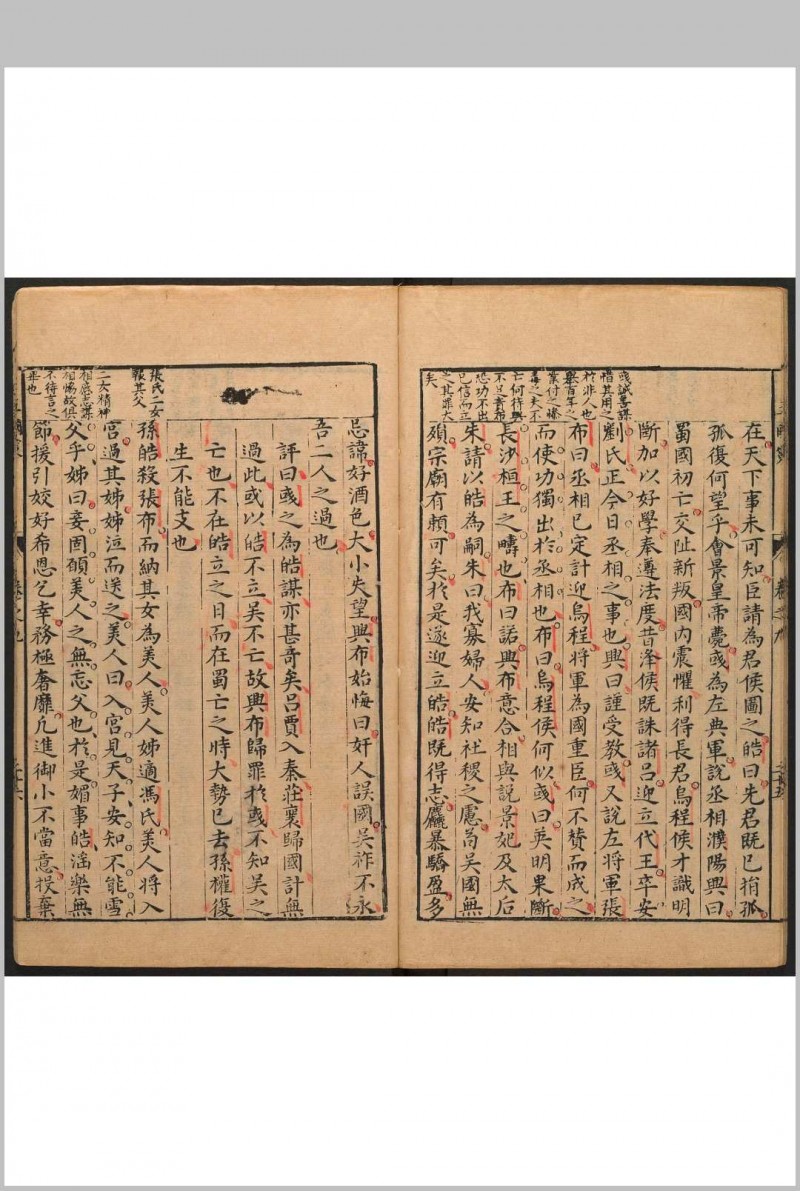 彧誠善謀
惜其用之
於非人也
舉百年之
業付之慘
毒之夫不
亡何待興
不足責布
恐功不出
已信而立
之其罪大
矣
在天下事未可知臣請為君侯圖之皓曰先君既已捐孤
孤復何望乎會景皇帝薨彧為左典軍說丞相濮陽興曰
蜀國初亡交阯新叛國內震懼利得長君烏程侯才識明
斷加以好學奉遵法度昔絳侯既誅諸呂迎立代王卒安
劉氏正今日丞相之事也興曰謹受教彧又說左將軍張
布曰丞相已定計迎烏程將軍為國重臣何不贊而成之
而使功獨出於丞相也布曰烏程侯何似彧曰英明果斷
長沙桓王之疇也布曰諾興布意合相與說景妃及太后
朱請以皓為嗣朱曰我寡婦人安知社稷之慮苟吳國無
殞宗廟有賴可矣於是遂迎立皓皓既得志麤暴驕盈多
張氏二女
報其父
二女精神
相感志業
相
故俱
不待言之
畢也
忌諱好酒色大小失望興布始悔曰奸人誤國吳祚不永
吾二人之過也
評曰彧之為皓謀亦甚奇矣呂賈入秦莊襄歸國計無
過此或以皓不立吳不亡故興布歸罪於彧不知吳之
亡也不在皓立之日而在蜀亡之時大勢已去孫權復
生不能支也
孫皓殺張布而納其女為美人美人姊適馮氏美人將入
宮過其姊姊泣而送之美人曰入宮見天子安知不能雪
父乎姊曰妾固願美人之無忘父也於是媚事皓淫樂無
節援引姣好希恩乞幸務極奢靡凡進御小不當意投棄